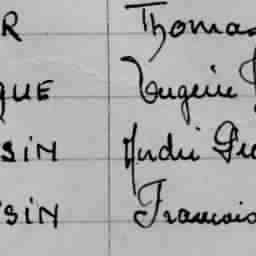 R Thomas
QUE Eugène
SIN André
SSIN François